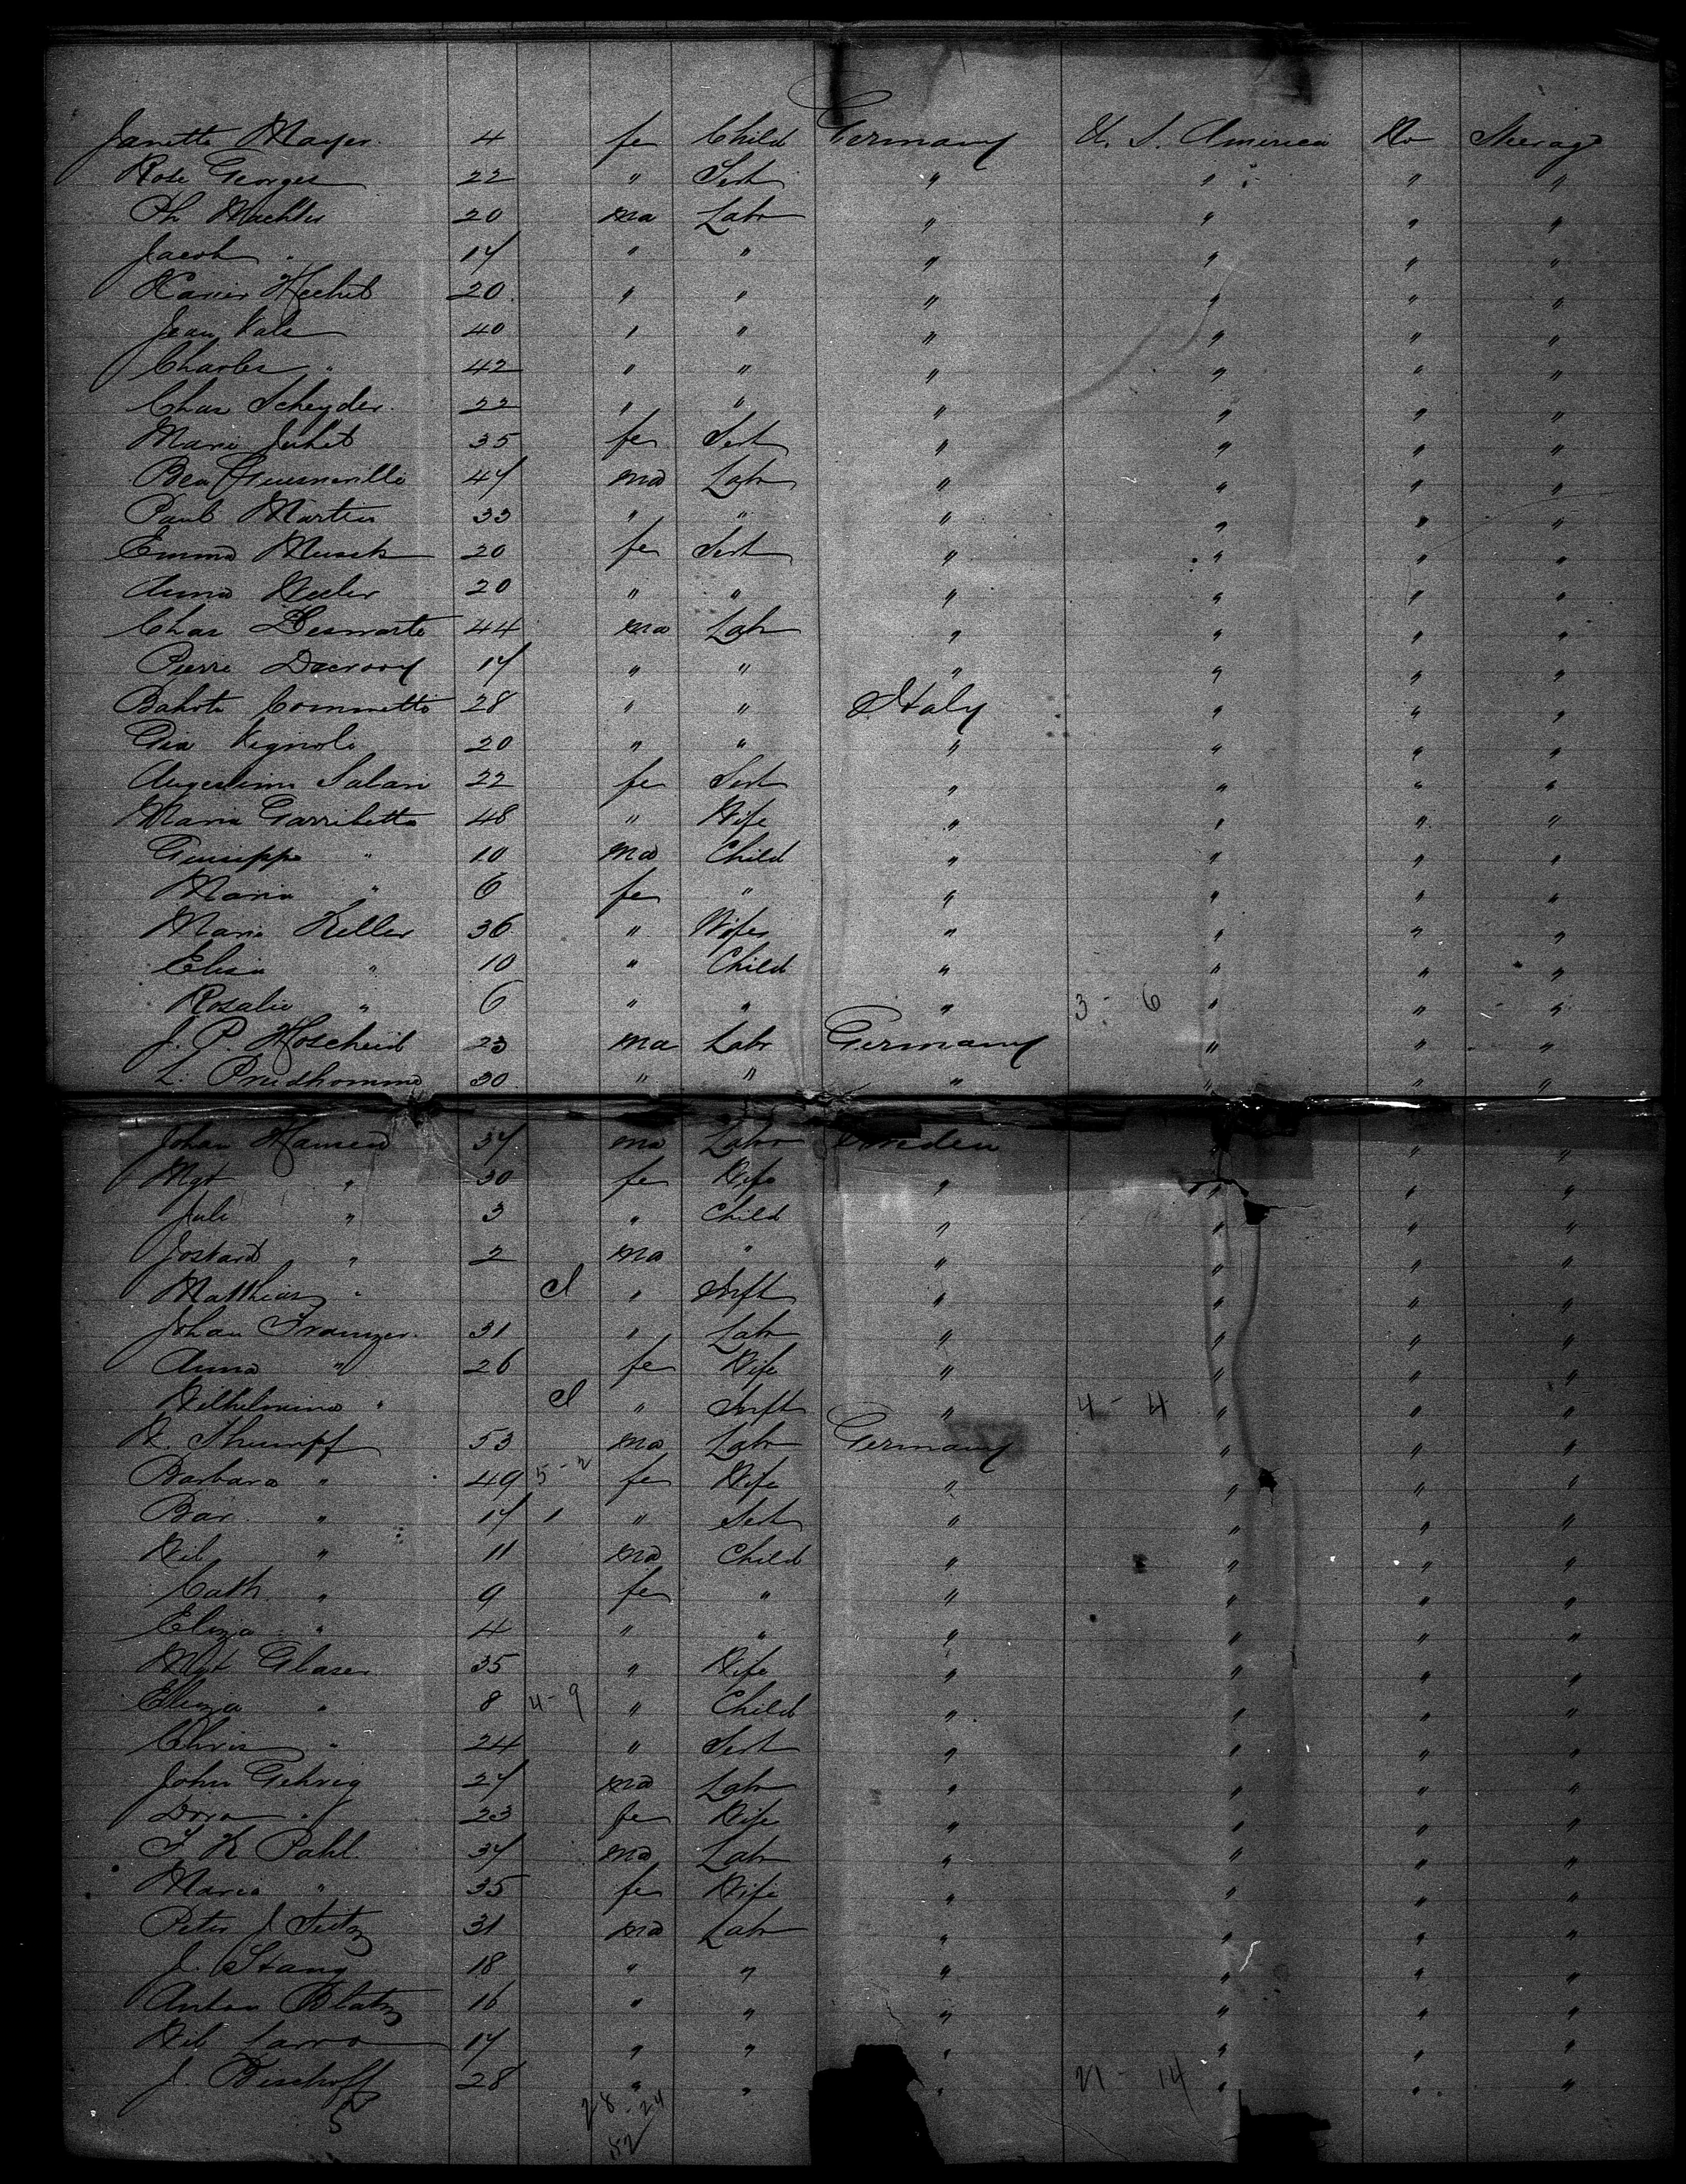 Janette Mayer 4 fe Child Germany U. S. America No Steerage
Rose Georges 22 " Sert " " " "
Ph Machter 20 ma Labr " " " "
Jacob " 17 " " " " " "
Xavier Hechet 20 " " " " " "
Jean Vals 40 " " " " " "
Charles " 42 " " " " " "
Chas Scheyder 22 " " " " " "
Marie Juhet 35 fe Sert " " " "
Ben 47 ma Labr " " " "
Paul Martin 33 " " " " " "
Emma Musch 20 fe Sert " " " "
Anna 20 " " " " " "
Chas Deswarte 44 ma Labr " " " "
Pierre Decrooy 17 " " " " " "
Commetto 28 " " Italy " " "
Gia Vignolo 20 " " " " " "
Augustina Salari 22 fe Sert " " " "
Maria Garribetto 48 " Wife " " " "
Guiseppe " 10 ma Child " " " "
Maria " 6 fe " " " " "
Maria Keller 36 " Wife " " " "
Elisa " 10 " Child " " " "
Rosalie " 6 " " " 3 - 6 " " "
J. P. Hoscheid 23 ma Labr Germany " " "
L. Prudhomme 30 " " " " " "
Johan Hansen 37 ma Labr Sweden " " "
Mgt " 30 fe Wife " " " "
Jule " 3 " Child " " " "
" 2 ma " " " " "
Matthias " " Inft " " " "
Johan Franzen 31 " Labr " " " "
Anna " 26 fe Wife " " " "
Wilhelmina " " Inft " 4 - 4 " " "
53 ma Labr Germany " " "
Barbara " 49 5 - 2 fe Wife " " " "
Bar. " 17 1 " Sert " " " "
" 11 ma Child " " " "
Cath. " 9 fe " " " " "
Eliza " 4 " " " " " "
Mgt Glaser 35 " Wife " " " "
Eliza " 8 4 - 9 " Child " " " "
Chris " 24 " Sert " " " "
John Gehrig 27 ma Labr " " " "
Dora " 23 fe Wife " " " "
Pahl 37 ma Labr " " " "
Maria " 35 fe Wife " " " "
Peter J Seitz 31 ma Labr " " " "
J. Stang 18 " " " " " "
Anton Blatz 16 " " " " " "
17 " " " " " "
J. Bischoff 28 " " " 21 - 14 " " "
28 - 24
52